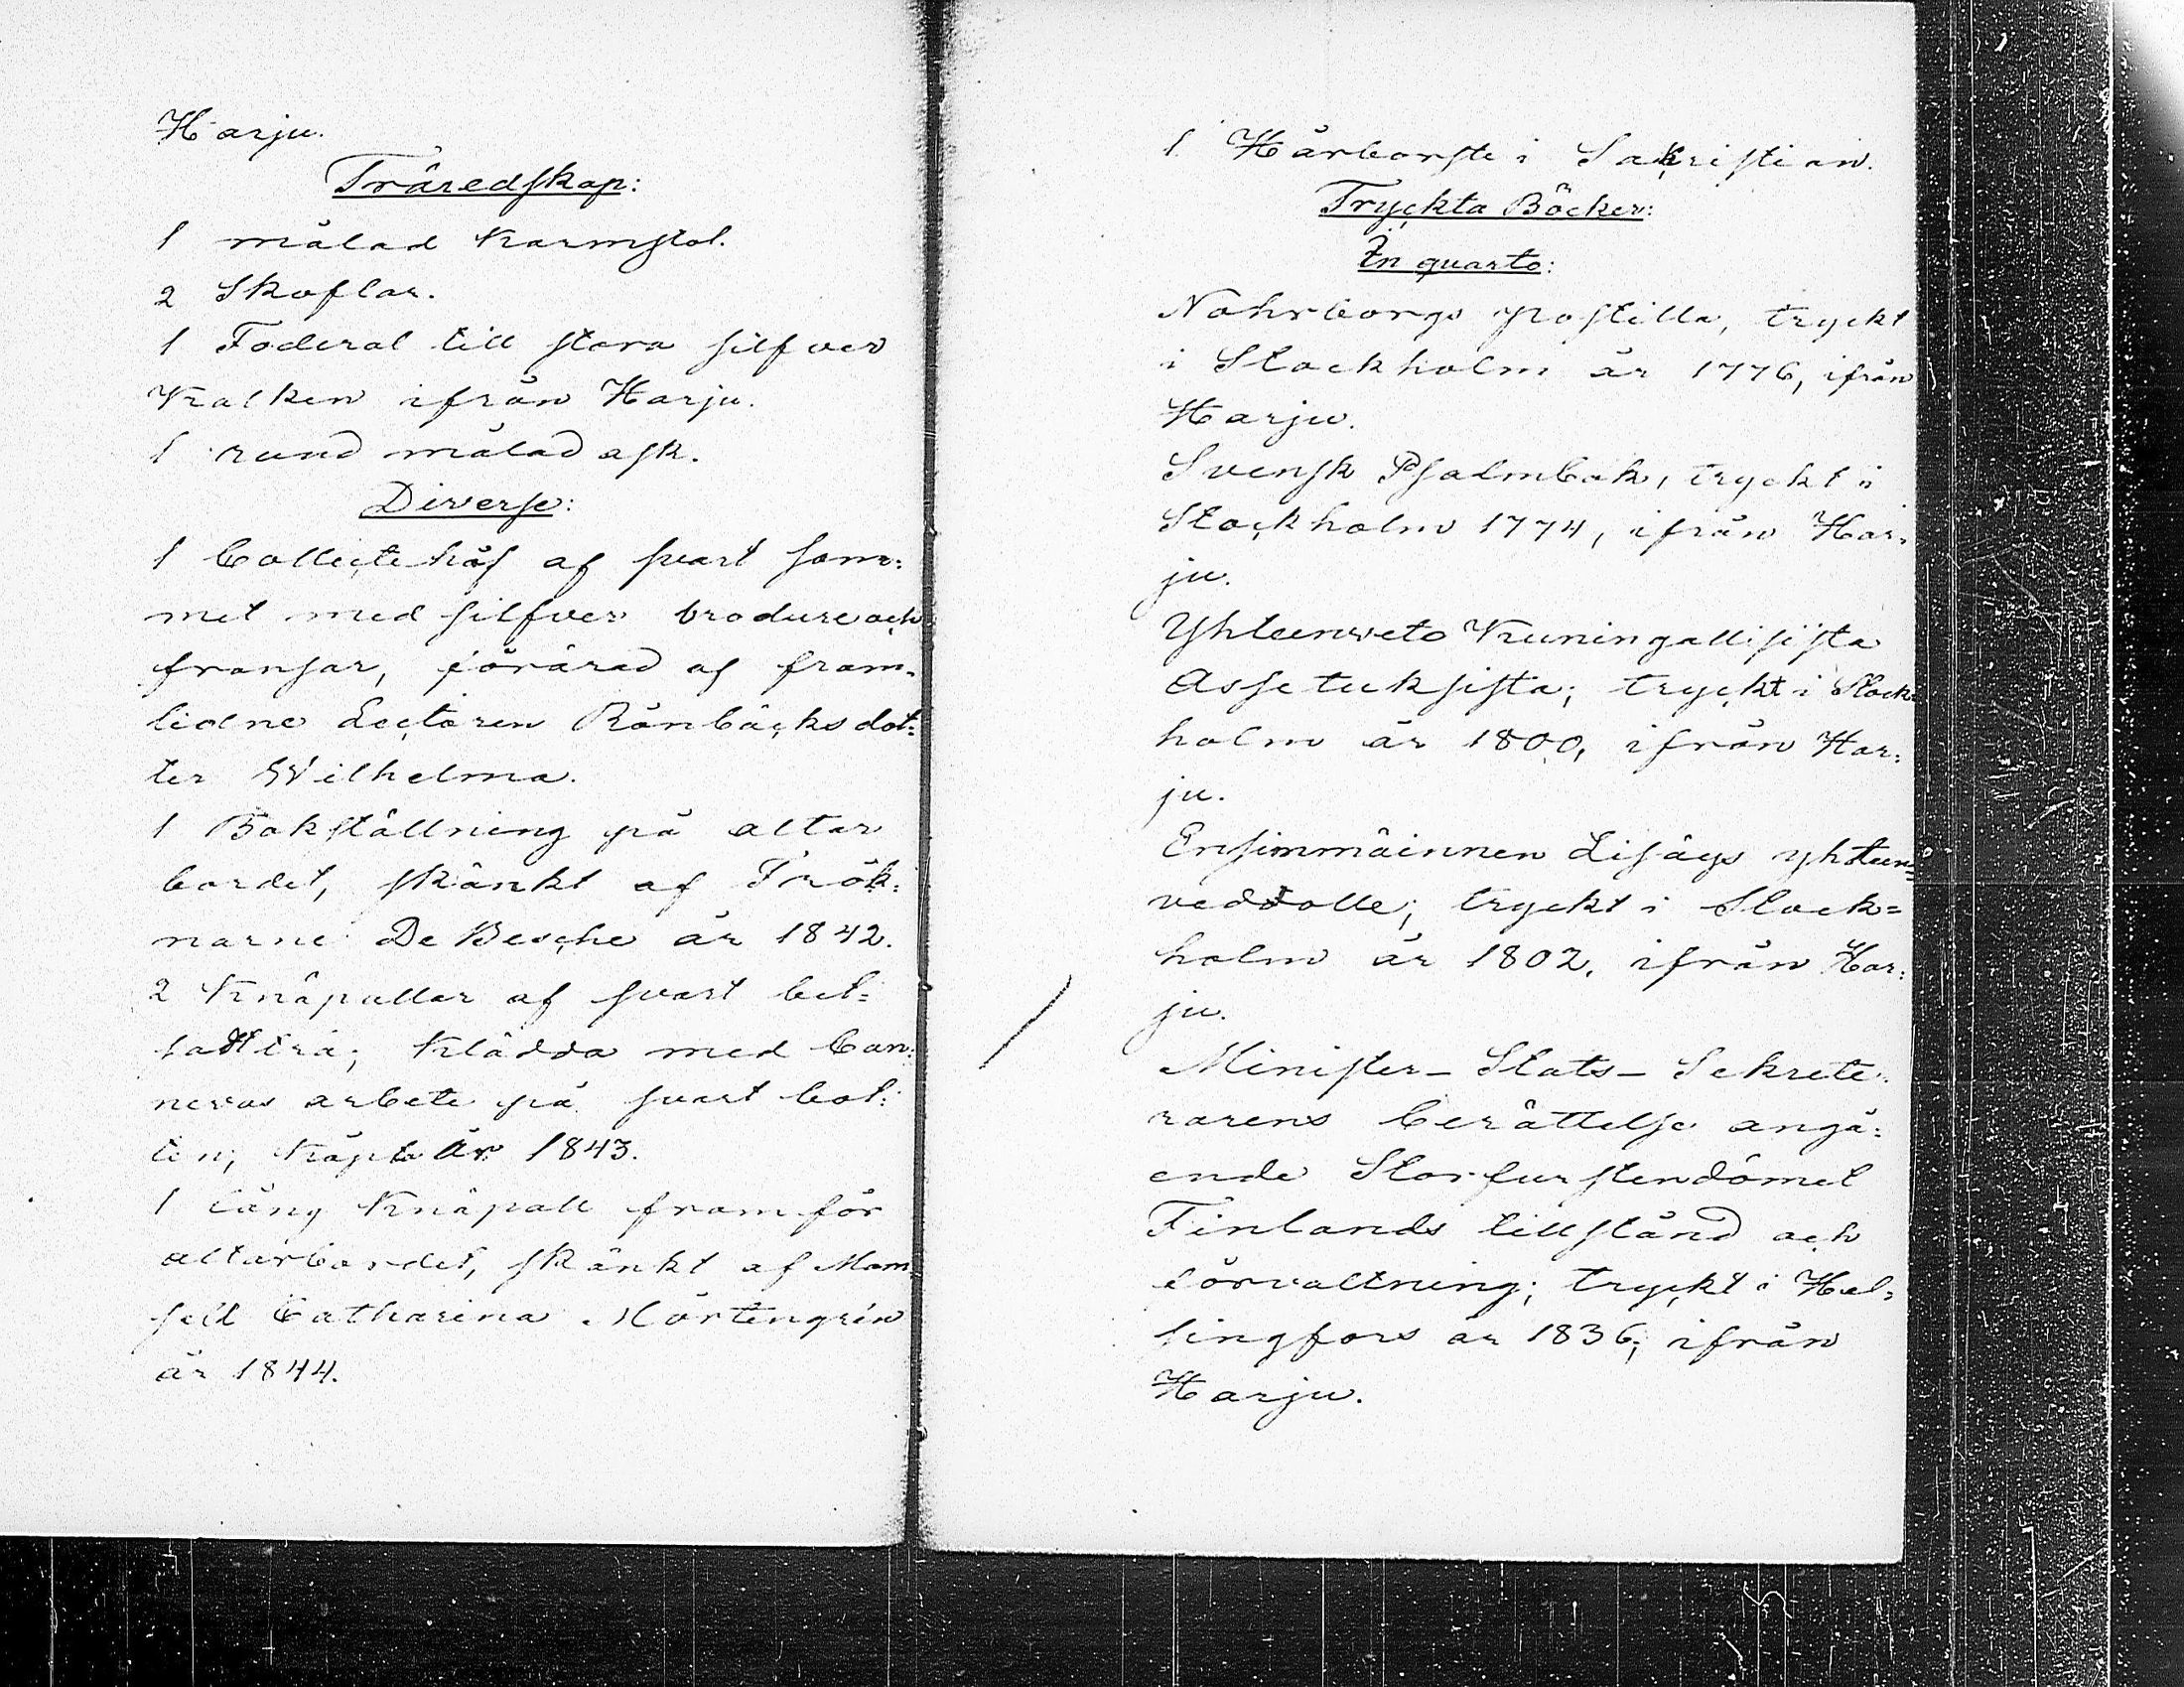 Harju.
Träredskap:
1 målad Karmstol.
2 Skoflar.
1 Foderal till stora silfver
Kalken ifrån Harju.
1 rund målad ask.
Diverse:
1 Collectehåf af svart sam=
met med silfver brodure och
fransar, förärad af fram=
lidne Lectoren Rönbäcks dot=
ter Wilhelma.
1 Bokställning på altar
bordet, skänkt af Frök=
narne De Besche år 1842.
2 Knäpallar af svart bet=
sadt trä; klädda med Can=
nevas arbete på svart bot=
ten; köpta År 1843.
1 lång Knäpall framför
altarbordet, skänkt af Mam=
sell Catharina Mårtengrén
år 1844.
1 Hårborste i Sakristian.
Tryckta Böcker:
In quarto:
Nohrborgs postilla, tryckt
i Stockholm år 1776, ifrån
Harju.
Svensk Psalmbok, tryckt i
Stockholm 1774, ifrån Har=
ju.
Yhteenveto Kuningallisista
Assetuksista; tryckt i Stock=
holm år 1800, ifrån Har=
ju.
Ensimmäinnen Lisäys yhteen=
vedolle; tryckt i Stock=
holm år 1802, ifrån Har=
ju.
Minister-Stats-Sekrete=
rarens berättelse angå=
ende Storfurstendömet
Finlands tillstånd och
förvaltning; tryckt i Hel=
singfors år 1836; ifrån
Harju.